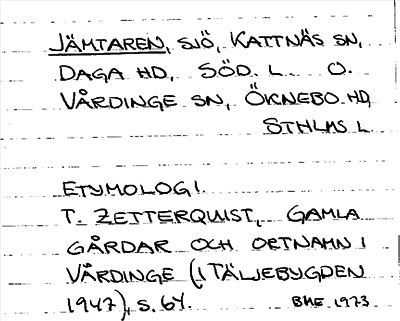 JÄMTAREN, SJÖ, KATTNÄS SN,
DAGA HD, SÖD. L. O.
VÅRDINGE SN, ÖKNEBO HD,
STHLMS L.
ETYMOLOGI.
T. ZETTERQUIST, GAMLA
GÅRDAR OCH ORTNAMN I
VÅRDINGE (I TÄLJEBYGDEN
1947), S. 64.
BHE 1973